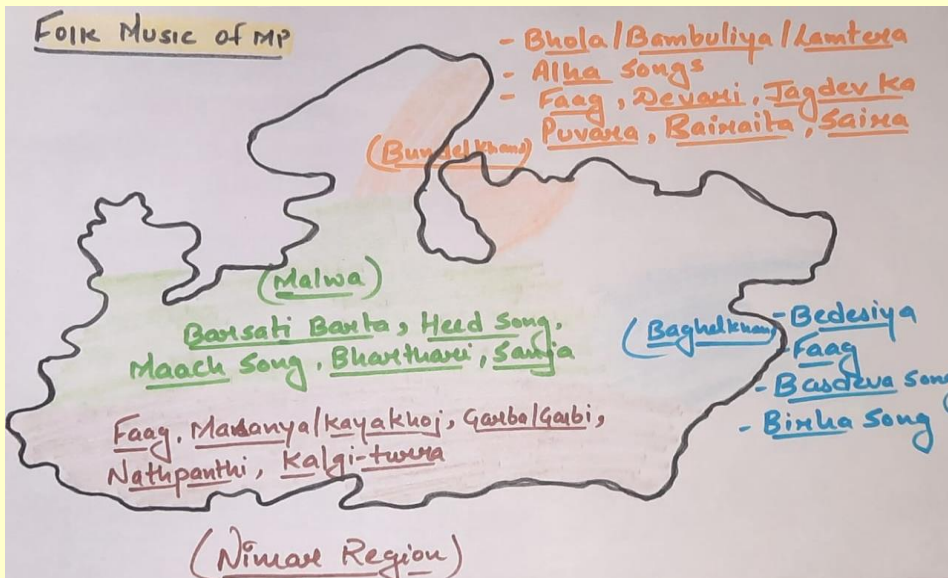 Folk Music of MP
- Bhola/Bambuliya/Lamtera
- Alha Songs
- Faag, Devari, Jagdev Ka
Puvara, Bairaita, Saira
(Bundelkhand)
(Malwa)
Barsati Barta, Heed Song,
Maach Song, Bharthari, Sanja
(Baghelkhand)
- Bedesiya
- Faag
- Basdeva Song
- Birha Song
Faag, Masanya/Kayakhoj, Garba/Garbi,
Nathpanthi, Kalgi-turra
(Nimar Region)